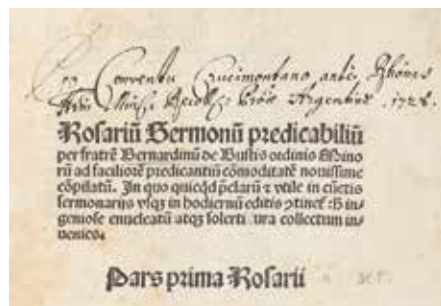 Ex Conventu Crucimontano ante Rhönas
Argentinæ. 1728.
Rosariū Sermonū predicabiliū
per fratrē Bernardinū de Bustis ordinis Mino
rū ad faciliorē predicantiū cōmoditatē nouissime
cōpilatū. In quo quicqd p̄clarū ⁊ vtile in cūctis
sermonarijs vsqʒ in hodiernū editis ↄtinet᷑: h̄ in
geniose enucleatū atqʒ solerti cura collectum in
uenies.
Pars prima Rosarii